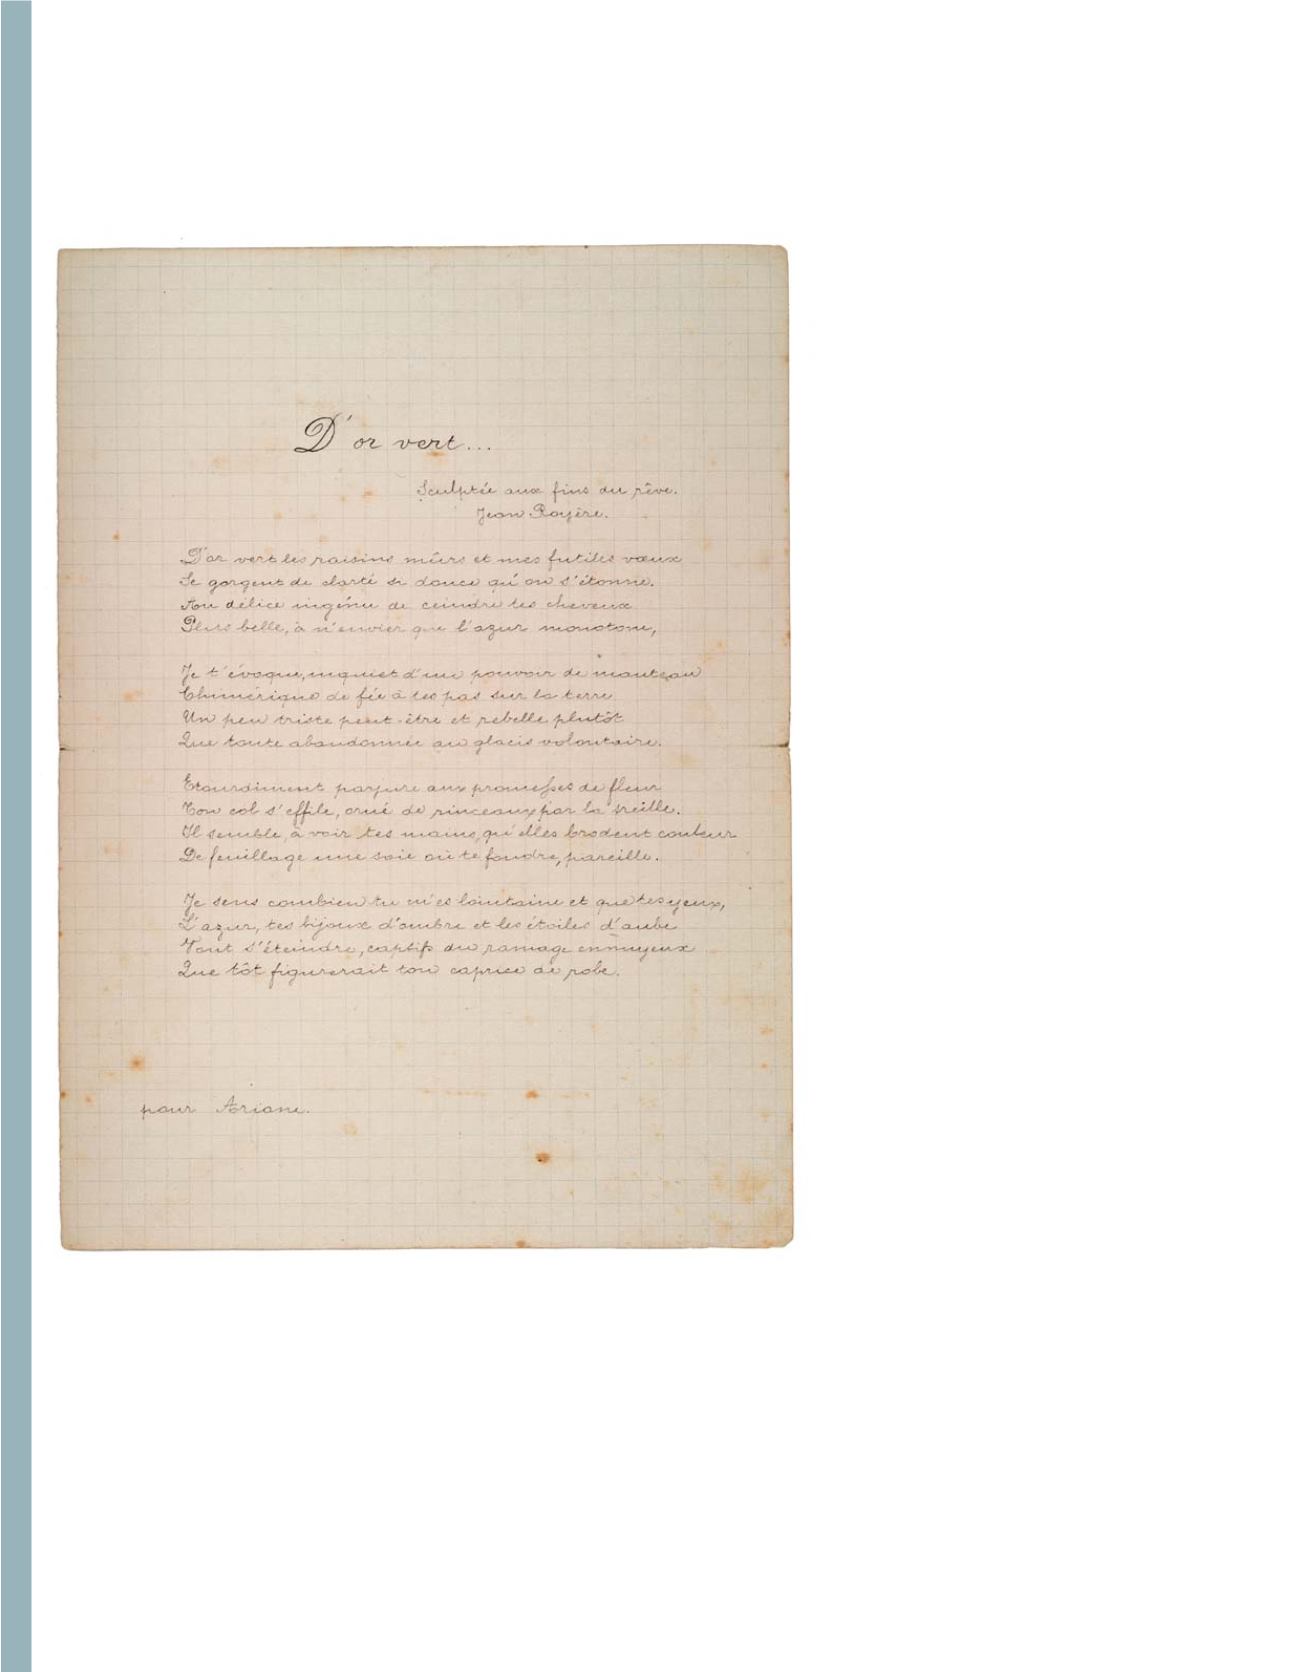 D'or vert...
Sculptée aux fins du rêve.
Jean Royère.
D'or vert les raisins mûrs et mes futiles vœux
Se gorgent de clarté si douce qu'on s'étonne.
Au délice ingénu de ceindre tes cheveux
Plus belle, à n'envier que l'azur monotone,
Je t'évoque, inquiet d'un pouvoir de manteau
Chimérique de fée à tes pas sur la terre
Un peu triste peut-être et rebelle plutôt
Que toute abandonnée au glacis volontaire.
Etourdiment parjure aux promesses de fleur
Ton col s'effile, orné de rinceaux par la treille.
Il semble, à voir tes mains, qu'elles brodent couleur
De feuillage une soie où te fondre, pareille.
Je sens combien tu m'es lointaine et que tes yeux,
L'azur, tes bijoux d'ombre et les étoiles d'aube
Vont s'éteindre, captifs du ramage ennuyeux
Que tôt figurerait ton caprice de robe.
pour Ariane.